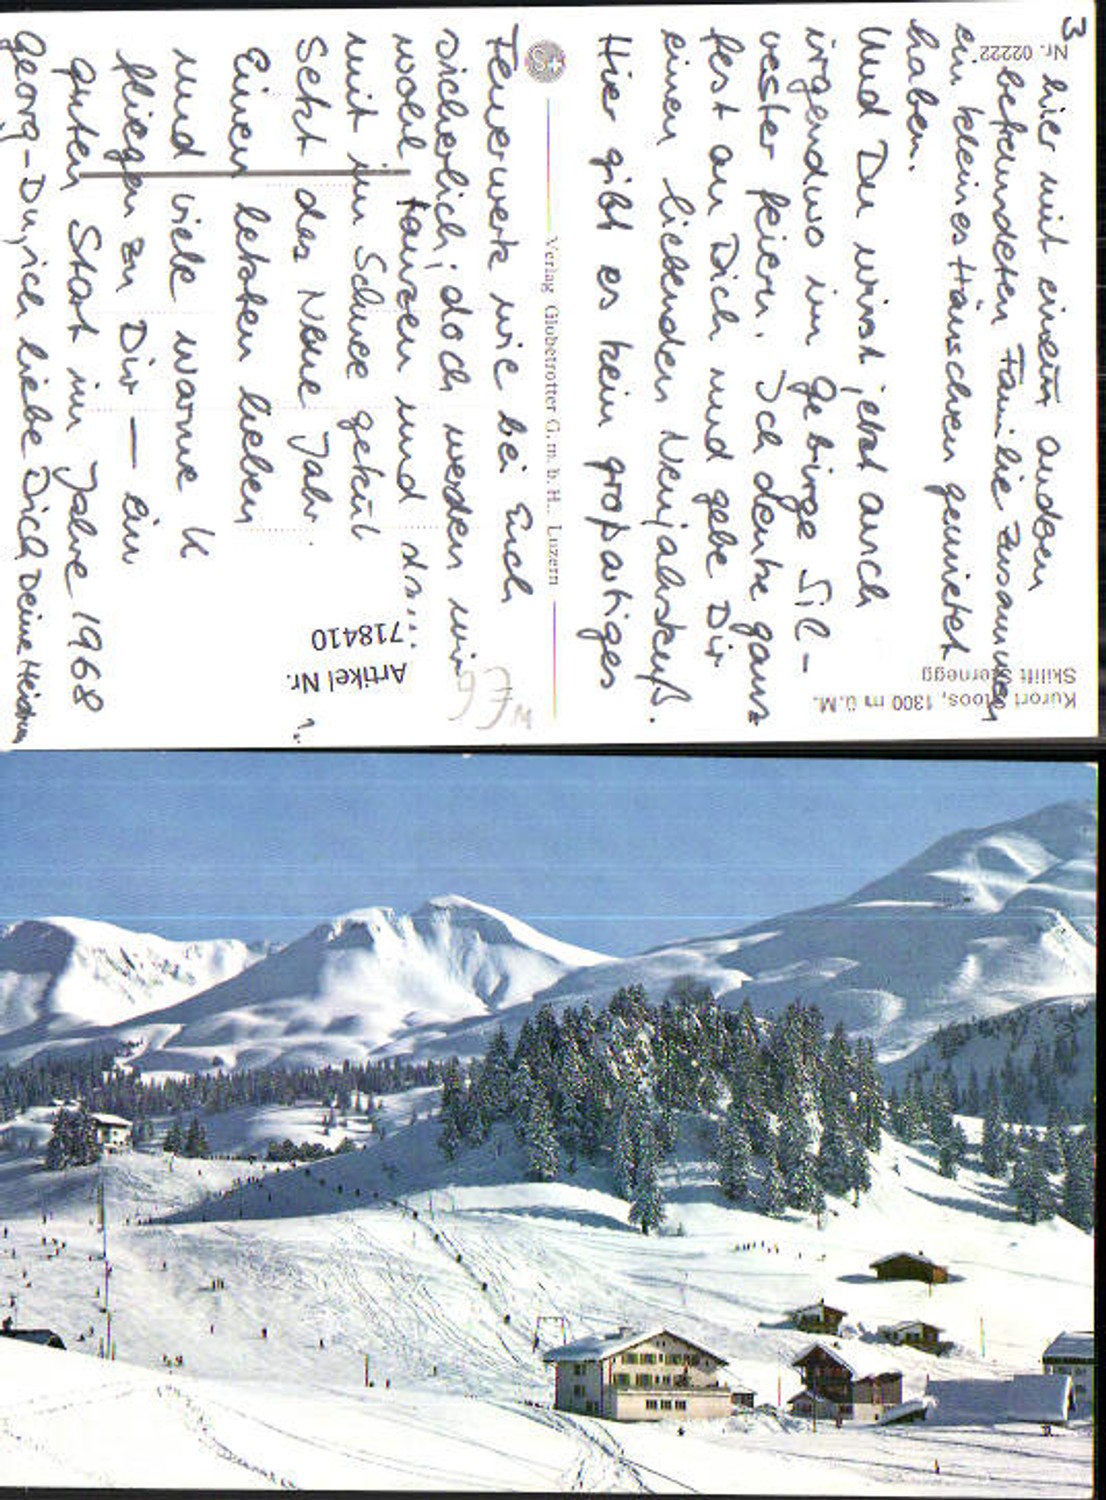 3
hier mit einem anderen
befreundeten Familie zusammen
ein kleines Häuschen gemietet
haben.
Und Du wirst jetzt auch
irgendwo im Gebirge Sil-
vester feiern. Ich denke ganz
fest an Dich und gebe Dir
einen liebenden Neujahrskuß.
Hier gibt es kein großartiges
Feuerwerk wie bei Euch
sicherlich, doch werden wir
wohl tanzen und das...
mit im Schnee gekühl
Sekt das Neue Jahr
Einen letzten lieben
und viele warme K
fliegen zu Dir — ein
guten Start im Jahre 1968
Georg-Du, ich liebe Dich Deine
Nr. 02222
Kurort Stoos, 1300 m ü.M.
Skilift Sternegg
Verlag Globetrotter G.m.b.H., Luzern
Artikel Nr.
718410